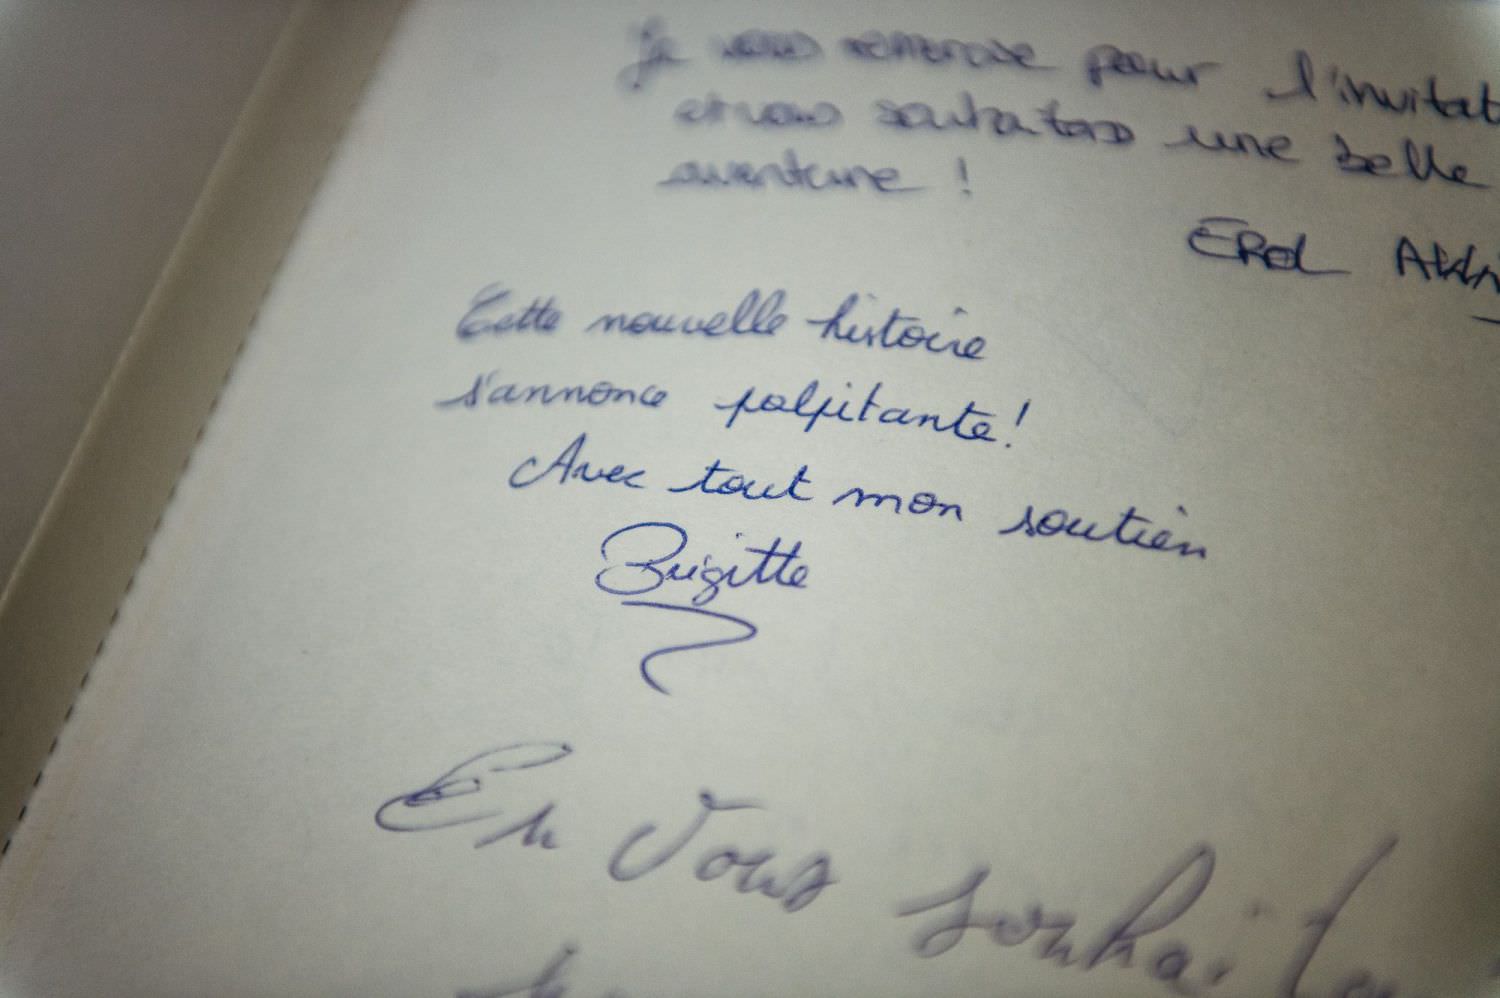 Je vous remercie pour l'invitat
et vous souhaitons une belle
aventure !
EROL
Cette nouvelle histoire
s'annonce palpitante !
Avec tout mon soutien
Brigitte
En vous souhai